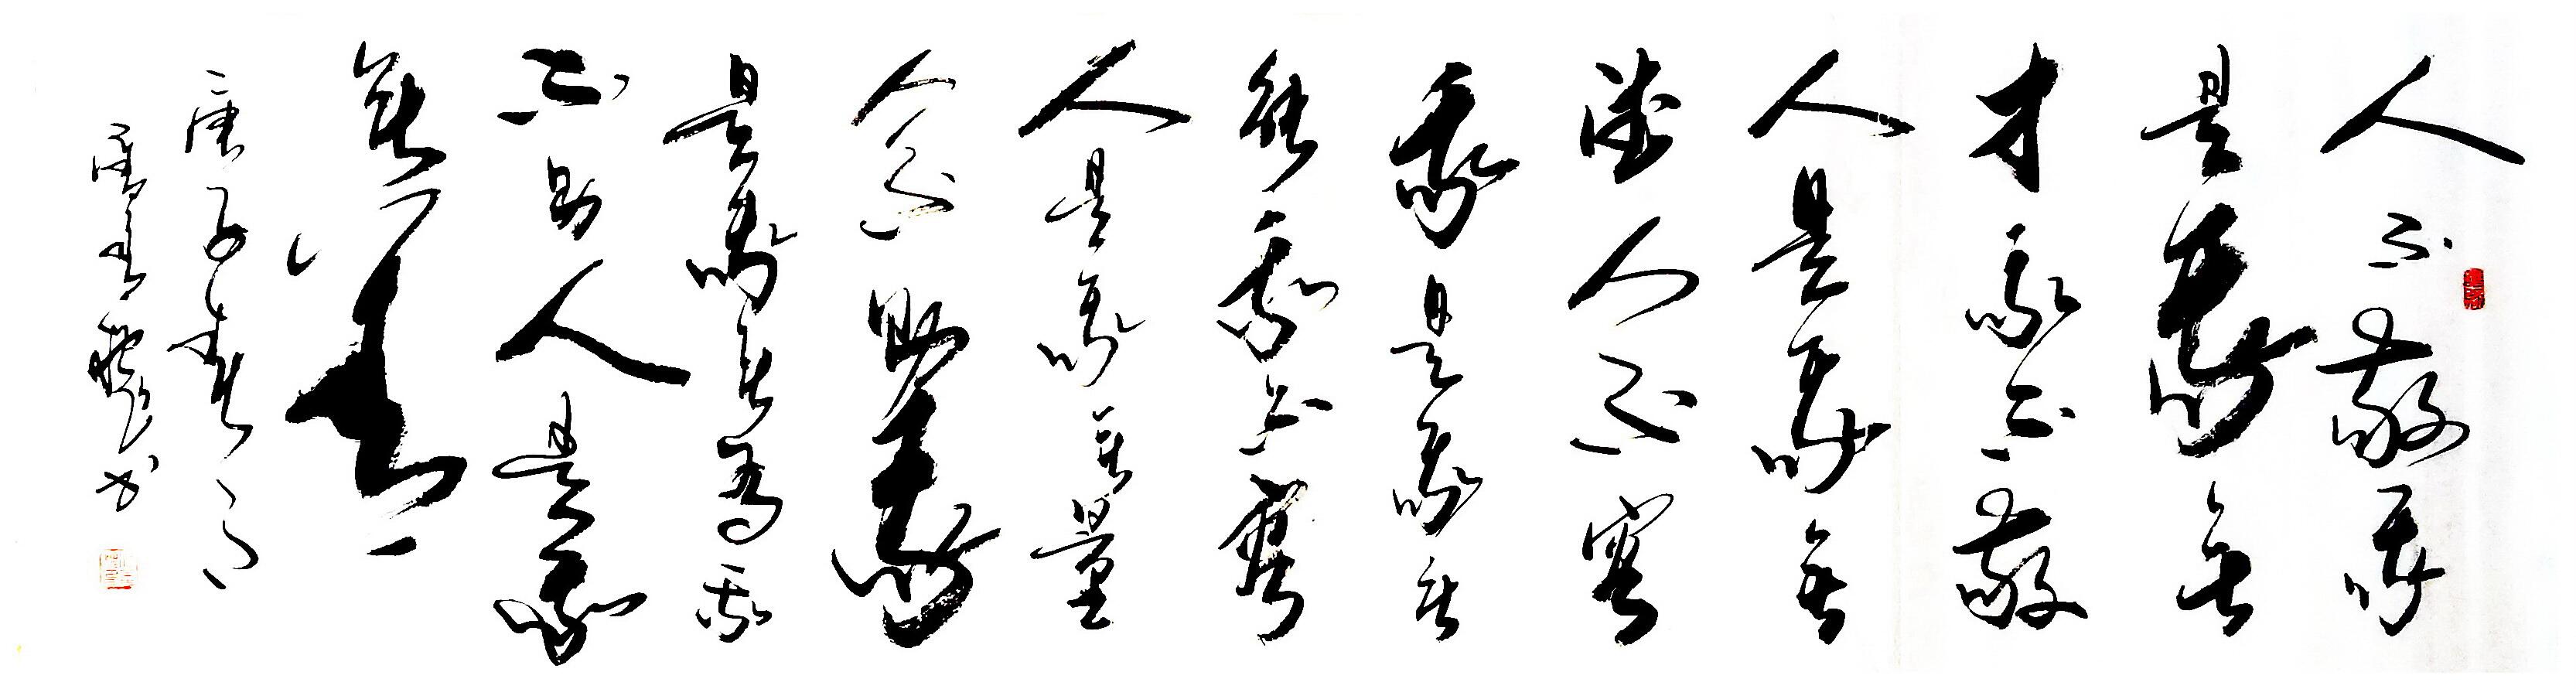 人不敬我
是我無
才我不敬
人是我無
德人不容
我是我無
能我不容
人是我無量
人不助我
是我無為我
不助人是我
無善
庚子春月
书